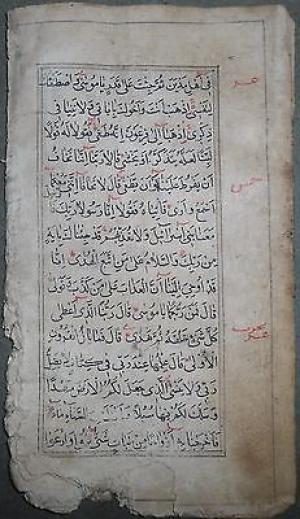 فِي أَهْلِ مَدْيَنَ ثُمَّ جِئْتَ عَلَىٰ قَدَرٍ يَا مُوسَىٰ وَاصْطَنَعْتُكَ
عشر
لِنَفْسِي اذْهَبْ أَنْتَ وَأَخُوكَ بِآيَاتِي وَلَا تَنِيَا فِي
ذِكْرِي اذْهَبَا إِلَىٰ فِرْعَوْنَ إِنَّهُ طَغَىٰ فَقُولَا لَهُ قَوْلًا
لَيِّنًا لَعَلَّهُ يَتَذَكَّرُ أَوْ يَخْشَىٰ قَالَا رَبَّنَا إِنَّنَا نَخَافُ
أَنْ يَفْرُطَ عَلَيْنَا أَوْ أَنْ يَطْغَىٰ قَالَ لَا تَخَافَا إِنَّنِي مَعَكُمَا
خمس
أَسْمَعُ وَأَرَىٰ فَأْتِيَاهُ فَقُولَا إِنَّا رَسُولَا رَبِّكَ فَأَرْسِلْ
مَعَنَا بَنِي إِسْرَائِيلَ وَلَا تُعَذِّبْهُمْ قَدْ جِئْنَاكَ بِآيَةٍ
مِنْ رَبِّكَ وَالسَّلَامُ عَلَىٰ مَنِ اتَّبَعَ الْهُدَىٰ إِنَّا
قَدْ أُوحِيَ إِلَيْنَا أَنَّ الْعَذَابَ عَلَىٰ مَنْ كَذَّبَ وَتَوَلَّىٰ
قَالَ فَمَنْ رَبُّكُمَا يَا مُوسَىٰ قَالَ رَبُّنَا الَّذِي أَعْطَىٰ
كُلَّ شَيْءٍ خَلْقَهُ ثُمَّ هَدَىٰ قَالَ فَمَا بَالُ الْقُرُونِ
عشر
الْأُولَىٰ قَالَ عِلْمُهَا عِنْدَ رَبِّي فِي كِتَابٍ لَا يَضِلُّ
رَبِّي وَلَا يَنْسَىٰ الَّذِي جَعَلَ لَكُمُ الْأَرْضَ مَهْدًا
وَسَلَكَ لَكُمْ فِيهَا سُبُلًا وَأَنْزَلَ السَّمَاءِ مَاءً
فَأَخْرَجْنَا بِهِ أَزْوَاجًا مِنْ نَبَاتٍ شَتَّىٰ وَارْعَوْا